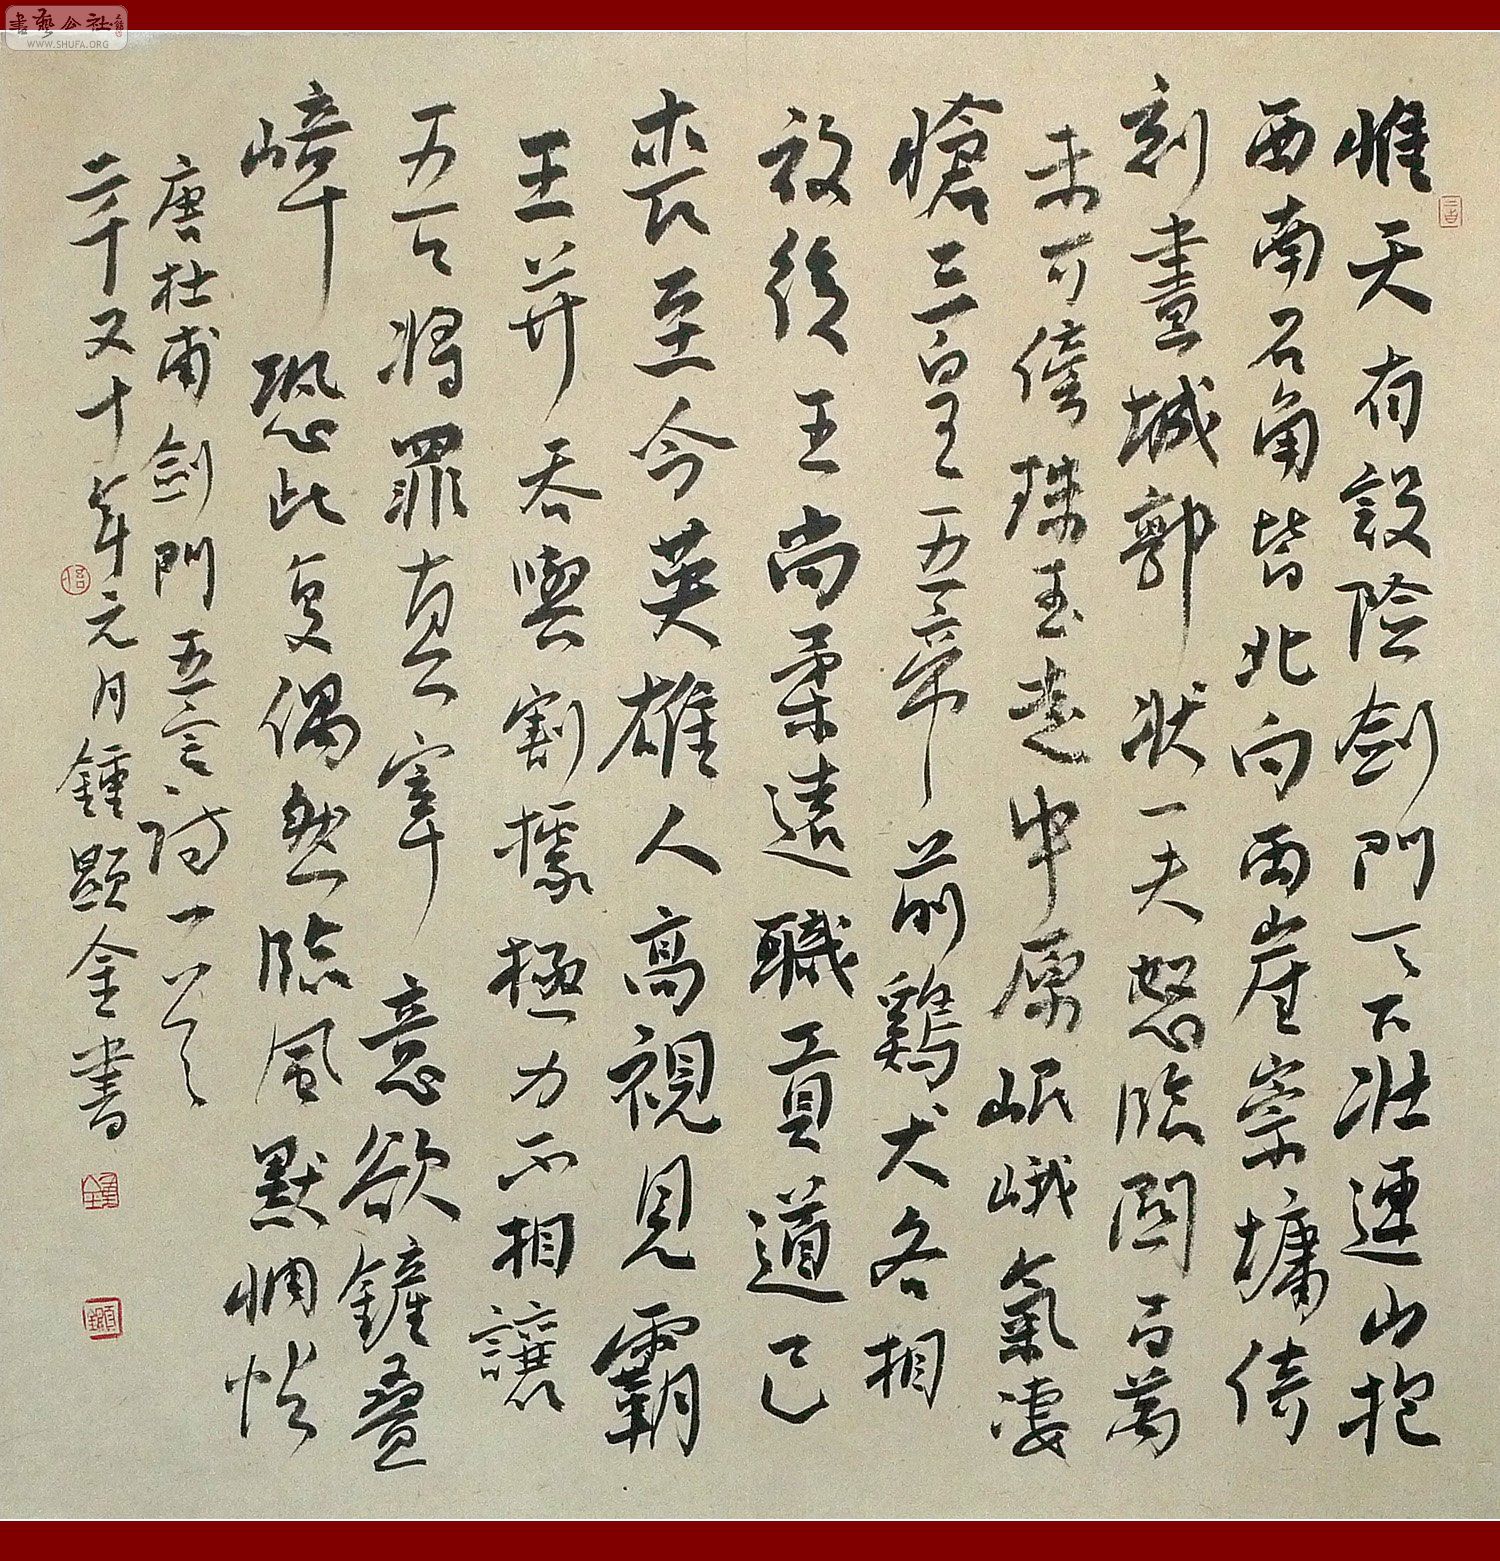 惟天有設險劍門天下壯連山抱
西南石角皆北向兩崖崇墉倚
刻畫城郭狀一夫怒臨關百萬
未可傍珠玉走中原岷峨氣凄
愴三皇五帝前鷄犬各相
放後王尚柔遠職貢道已
喪至今英雄人高視見霸
王并吞與割據極力不相讓
吾將罪真宰意欲鏟疊
嶂恐此復偶然臨風默惆悵
唐杜甫劍門五言詩一首
二千又十年元月鍾顯金書
書藝公社
WWW.SHUFA.ORG